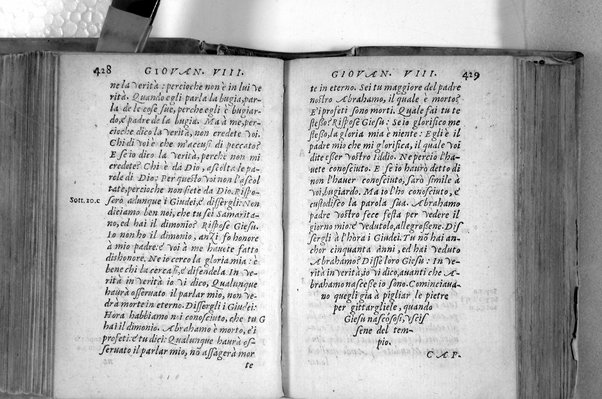 428 GIOVAN. VIII.
ne la verità: percioche non è in lui ve
rità. Quando egli parla la bugia, par-
la de le cose sue, perche egli è bugiar-
do, e padre de la bugia. Ma à me, per-
cioche dico la verità, non credete voi.
Chi di voi è che m'accusi di peccato?
E se io dico la verità, perche non mi
credete? Chi è da Dio, ascolta le pa-
role di Dio: Per questo voi non l'ascol
tate, percioche non siete da Dio. Rispo-
Sott. 10. c
serò adunque i Giudei, & dissergli: Non
diciamo ben noi, che tu sei Samarita-
no, ed hai il dimonio? Rispose Giesu,
Io non ho il dimonio, anzi fo honore
à mio padre: e voi à me hauete fatto
dishonore. Ne io cerco la gloria mia: è
bene chi la cerca sì, e difendela. In ve-
rità in verità io vi dico, Qualunque
haurà osseruato il parlar mio, non ve-
drà morte in eterno. Dissergli i Giudei:
Hora habbiamo noi conosciuto, che tu
G
hai il dimonio. Abrahamo è morto, e i
profeti: e tu dici: Qualunque haurà os-
seruato il parlar mio, nō assagerà mor
te
GIOVAN. VIII. 429
te in eterno. Sei tu maggiore del padre
nostro Abrahamo, il quale è morto?
E i profeti sono morti. Quale fai tu te
stesso? Rispose Giesu: Se io glorifico me
stesso, la gloria mia è niente: Egli è il
padre mio che mi glorifica, il quale voi
dite esser vostro iddio. Ne percio l'ha-
uete conosciuto. E se io haurò detto di
non l'hauer conosciuto, sarò simile à
voi, bugiardo. Ma io l'ho conosciuto, &
custodisco la parola sua. Abrahamo
padre vostro fece festa per vedere il
giorno mio: e vedutolo, allegrossene. Dis
sergli à l'hora i Giudei: Tu nō hai an-
chor cinquanta anni, ed hai veduto
Abrahamo? Disse loro Giesu: In ve-
rità in verità, io vi dico, auanti che A-
brahamo nascesse io sono. Cominciaua-
no quegli gia à pigliar le pietre
per gittargliele, quando
Giesu nascososi, vscis
sene del tem-
pio.
CAP.